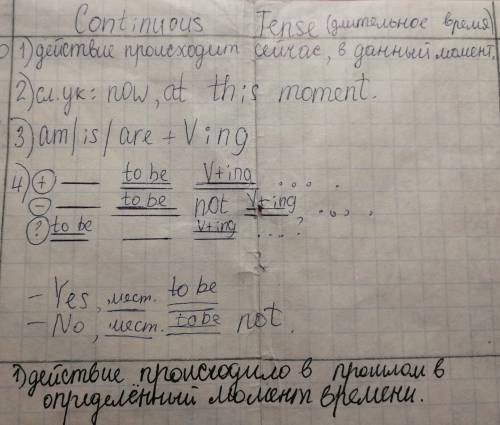 Continuous Tense (длительное время)
1) действие происходит сейчас, в данный момент.
2) сл. ук: now, at this moment.
3) am/is/are + Ving
4) + ___ to be V+ing ... .
- ___ to be not V+ing ... .
? to be ___ V+ing ... ?
- Yes, мест. to be
- No, мест. to be not.
1) действие происходило в прошлом в
определённый момент времени.